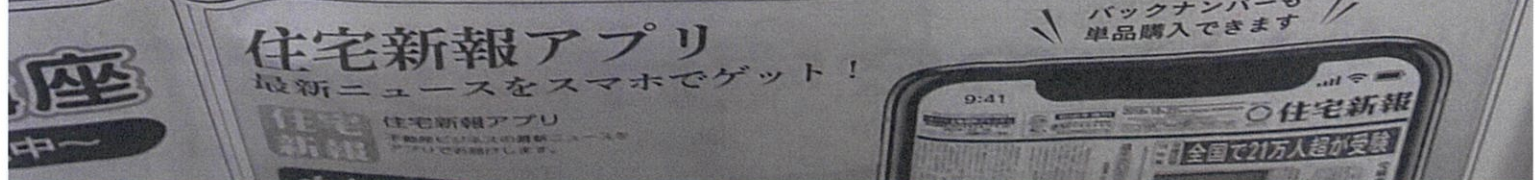 座
中〜
住宅新報アプリ
最新ニュースをスマホでゲット！
住宅
新報
住宅新報アプリ
不動産ビジネスの最新ニュースを
アプリでお届けします。
バックナンバーも
単品購入できます
9:41
住宅新報
全国で21万人超が受験